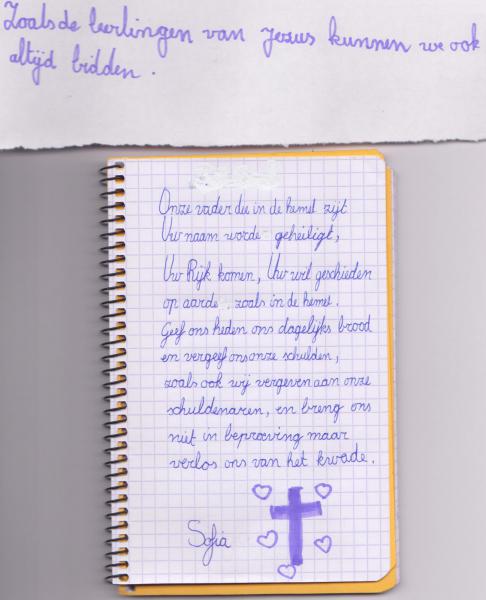 Zoals de leerlingen van Jezus kunnen we ook
altijd bidden.
Onze vader die in de hemel zijt
Uw naam worde geheiligd,
Uw Rijk komen, Uw wil geschieden
op aarde zoals in de hemel.
Geef ons heden ons dagelijks brood
en vergeef ons onze schulden,
zoals ook wij vergeven aan onze
schuldenaren, en breng ons
niet in beproeving maar
verlos ons van het kwade.
Sofia